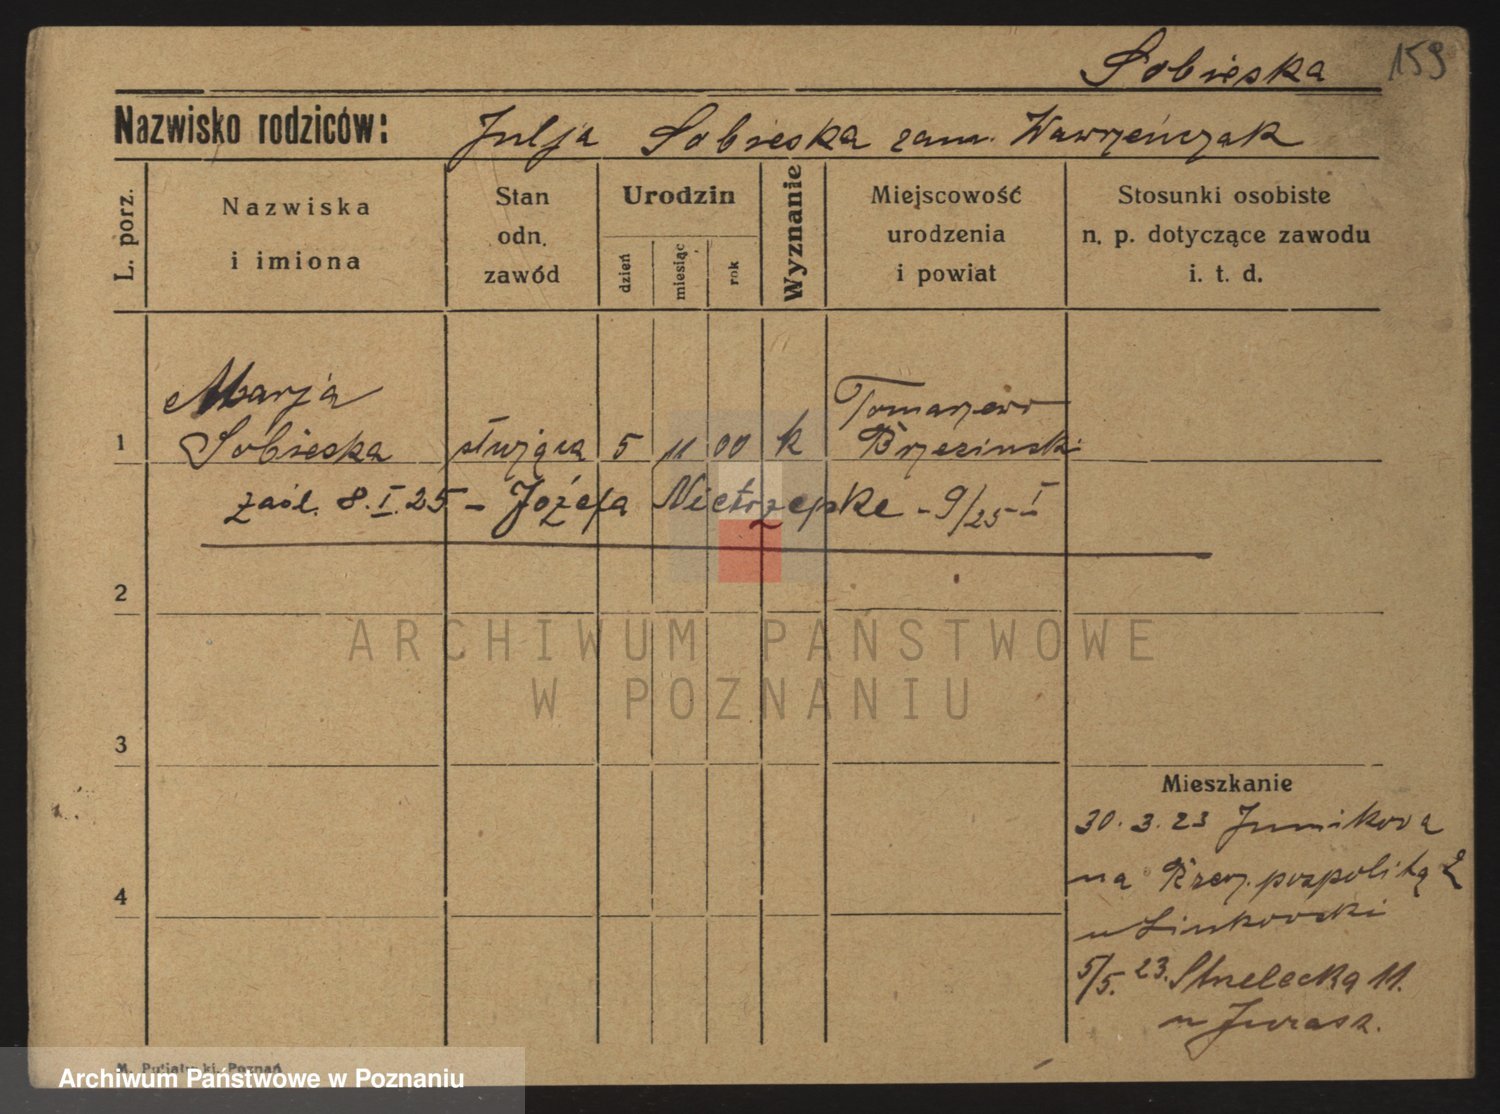 Sobieska 159
Nazwisko rodziców: Julja Sobieska zam. Wawrzeńczak
L. porz.
Nazwiska
i imiona
Stan
odn.
zawód
Urodzin
dzień
miesiąc
rok
Wyznanie
Miejscowość
urodzenia
i powiat
Stosunki osobiste
n. p. dotyczące zawodu
i. t. d.
Marja Tomaszewo
1 Sobieska służąca 5 11 00 k Brzezinski
zaśl. 8.I.25 – Józefa Nietrzepke – 9/25 – I
2
ARCHIWUM PAŃSTWOWE
W POZNANIU
3
Mieszkanie
30.3.23 Junikova
na Rzeczpospolitą 2
4
u Linkowski
5/5. 23. Strzelecką 11.
u Jurasz.
Poznań
Archiwum Państwowe w Poznaniu